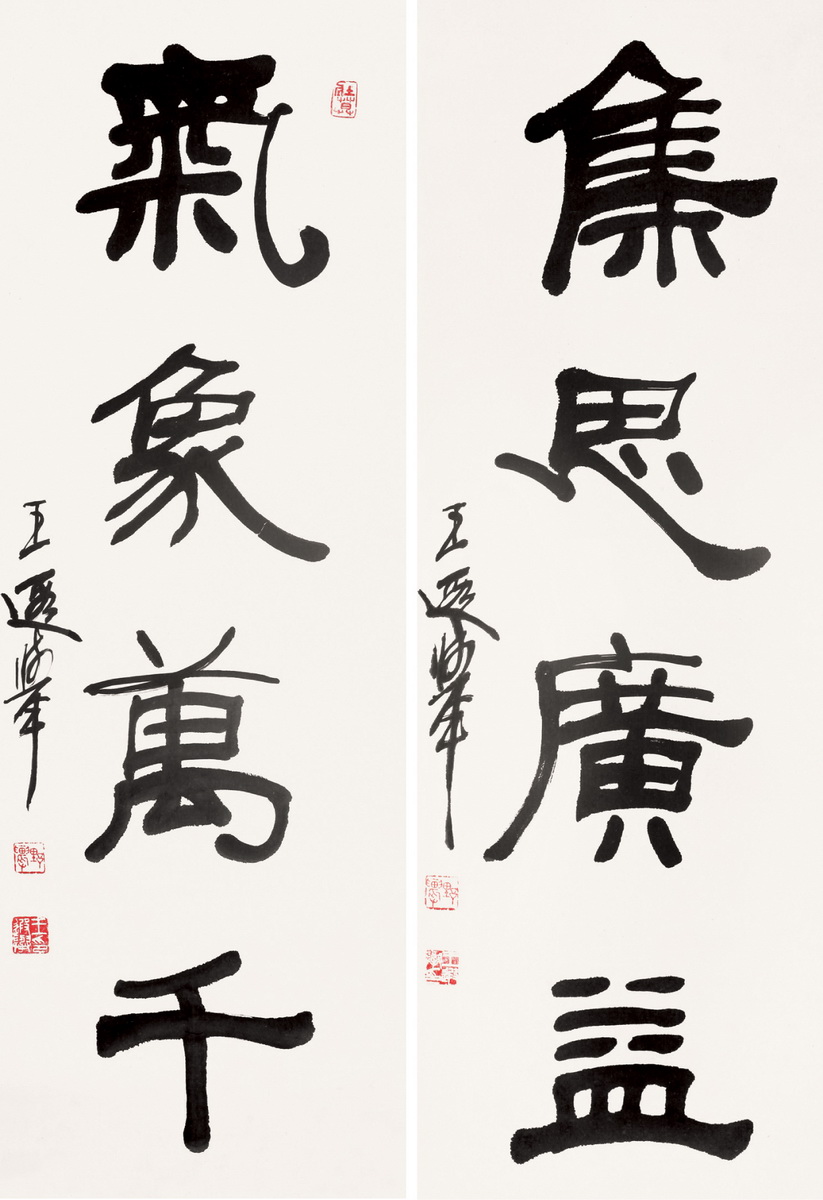 集思廣益
王遐舉
氣象萬千
王遐舉